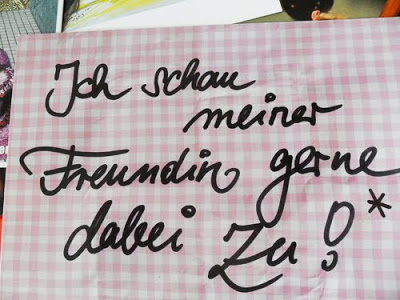 Ich schau
meiner
Freundin gerne
dabei zu!*